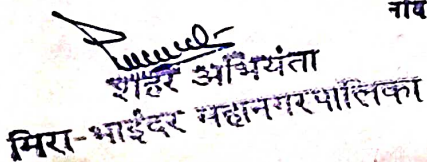 शहर अभियंता
मिरा-भाईंदर महानगरपालिका